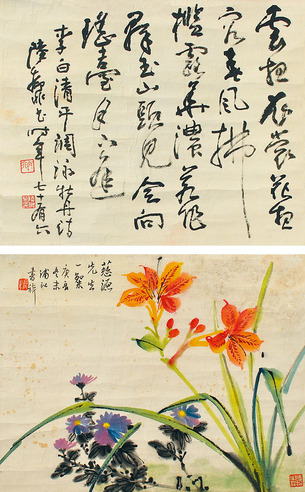 雲想衣裳花想
容春風拂
檻露華濃若非
群玉山頭見會向
瑤臺月下逢
李白清平調詠牡丹詩
陸 書時年七十有六
慈漁
先生
一粲
庚辰
冬末
浦江
書旂